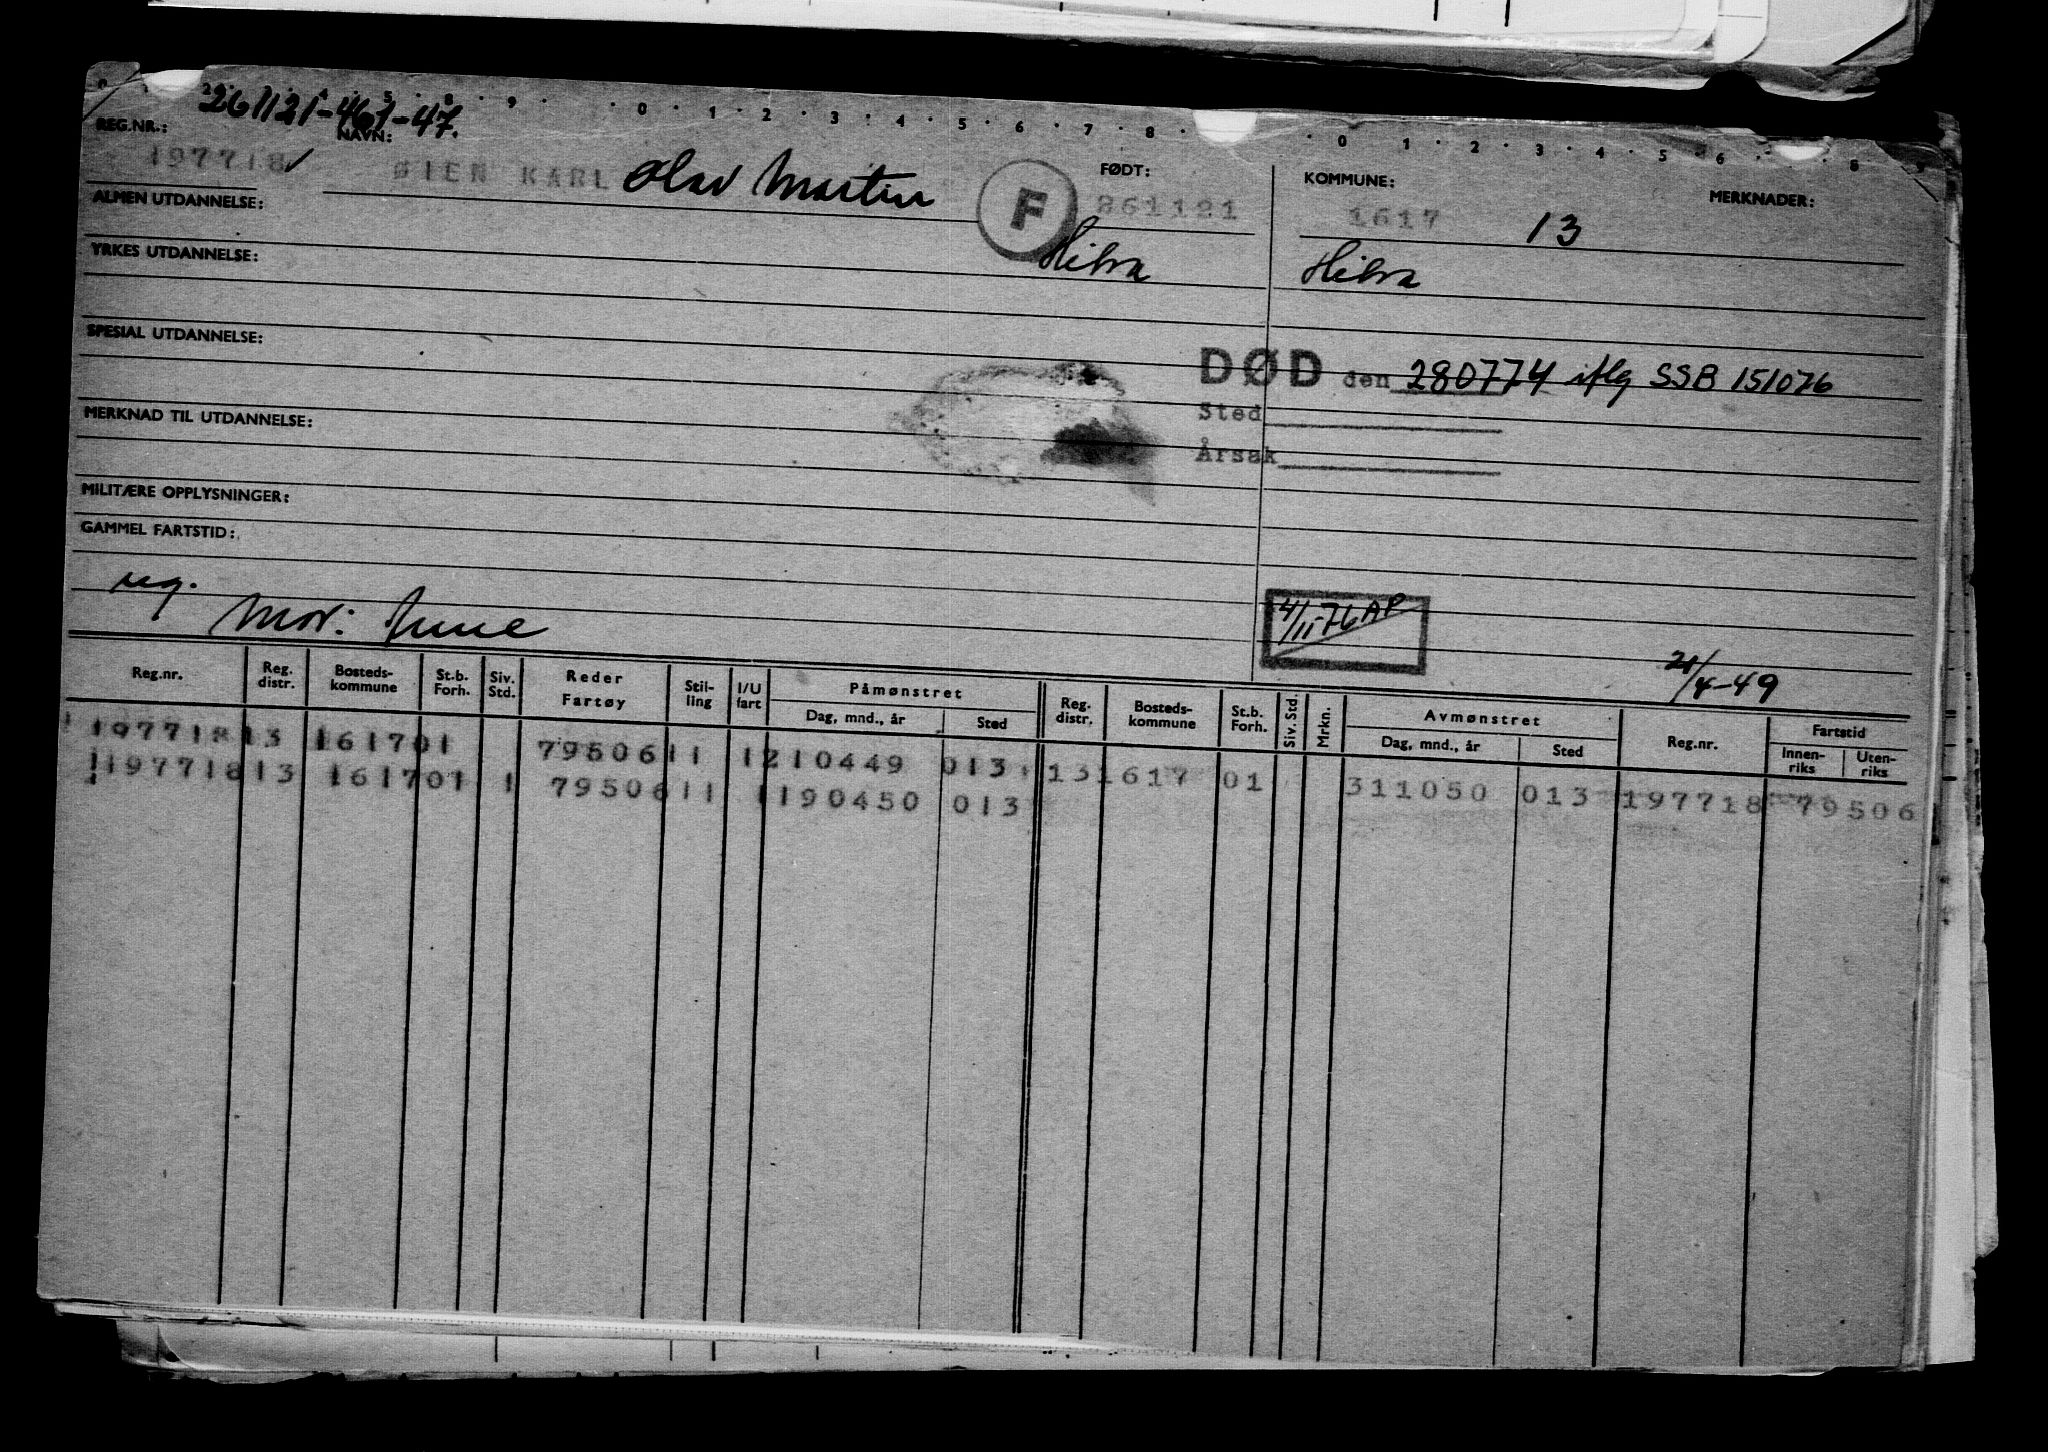 261121-461-47.
0 · 1 · 2 · 3 · 4 · 5 · 6 · 7 · 8 · 0 · 1 · 2 · 3 · 4 · 5 · 6 · 8
REG.NR.: NAVN: FØDT: KOMMUNE: MERKNADER:
197718 ✓ ØIEN KARL Olav Martin F 261121 1617 13
ALMEN UTDANNELSE:
Hitra Hitra
YRKES UTDANNELSE:
SPESIAL UTDANNELSE:
DØD den 280774 iflg SSB 151076
Sted
MERKNAD TIL UTDANNELSE:
Årsak
MILITÆRE OPPLYSNINGER:
GAMMEL FARTSTID:
reg. Mor:
4/11-76 AP
21/4-49
Reg.nr. Reg. distr. Bosteds-kommune St.b. Forh. Siv. Std. Reder Fartøy Stil-ling I/U fart Påmønstret Dag, mnd., år Sted Reg. distr. Bosteds-kommune St.b. Forh. Siv. Std. Mrkn. Avmønstret Dag, mnd., år Sted Reg.nr. Fartstid Innen-riks Uten-riks
197718 13 1617 01 79506 11 1 210449 013
197718 13 1617 01 1 79506 11 1 190450 013 13 1617 01 311050 013 197718 79506